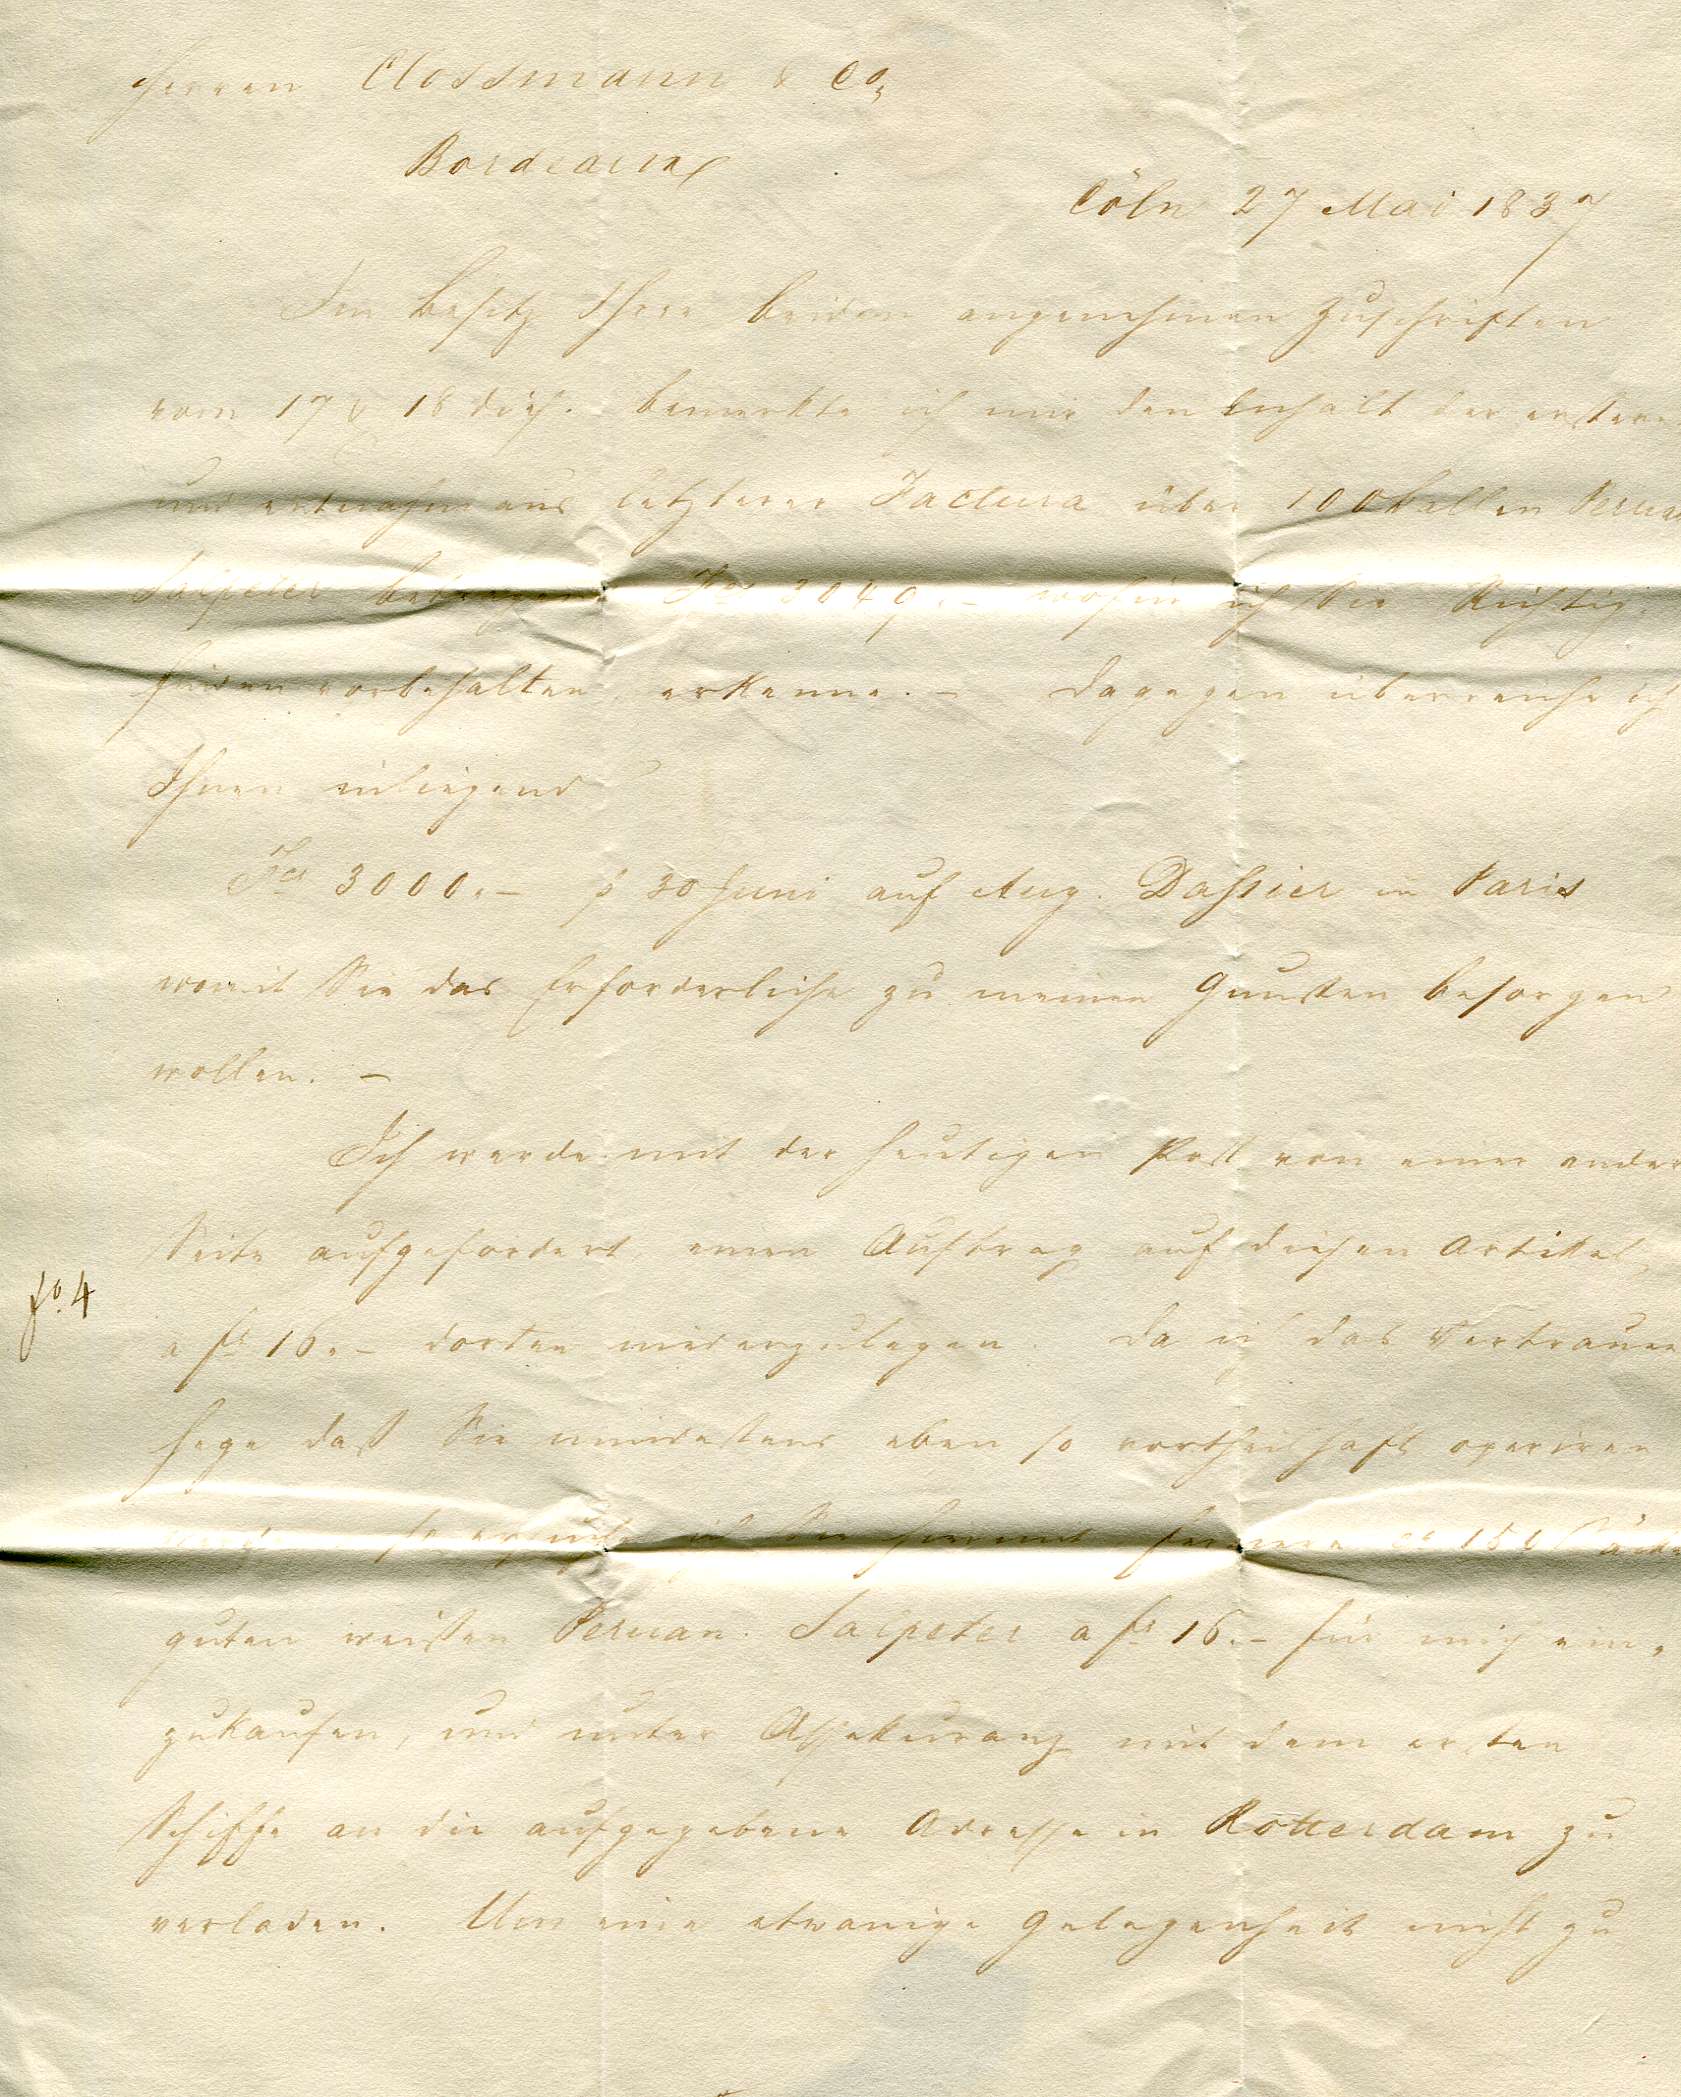 Herren Clossmann & Co,
Bordeaux
Cöln 27 Mai 1837
Im Besitz Ihrer beiden angenehmen Zuschriften
vom 17 & 18 dies. bemerkte ich mir den Inhalt der erstern
und entnahm aus letzterer Factura über 100 Ballen Peruan
Salpeter betragend Fcs 3049.- wofür ich Sie Richtig
finden vorbehalten erkenne. - Dagegen überreiche ich
Ihnen einliegend
Fcs 3000.- p 30 Juni auf Aug. Dassier in Paris
womit Sie das Erforderliche zu meinen Gunsten besorgen
wollen. -
Ich werde mit der heutigen Post von einer andern
Seite aufgefordert einen Auftrag auf diesen Artikel,
fo. 4
a fs 16.- dorten niederzulegen. Da ich das Vertrauen
hege daß Sie mindestens eben so vortheilhaft operiren
werden so ersuche ich Sie hiermit fernere
guten weißen Peruan. Salpeter a fs 16.- für mich ein-
zukaufen, und unter Assekuranz mit dem ersten
Schiffe an die aufgegebene Adresse in Rotterdam zu
verladen. Um eine etwanige Gelegenheit nicht zu